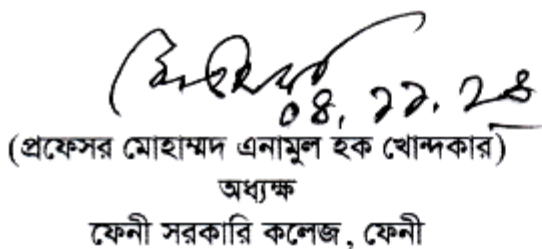 ০৪.১১.২৪
(প্রফেসর মোহাম্মদ এনামুল হক খোন্দকার)
অধ্যক্ষ
ফেনী সরকারি কলেজ, ফেনী